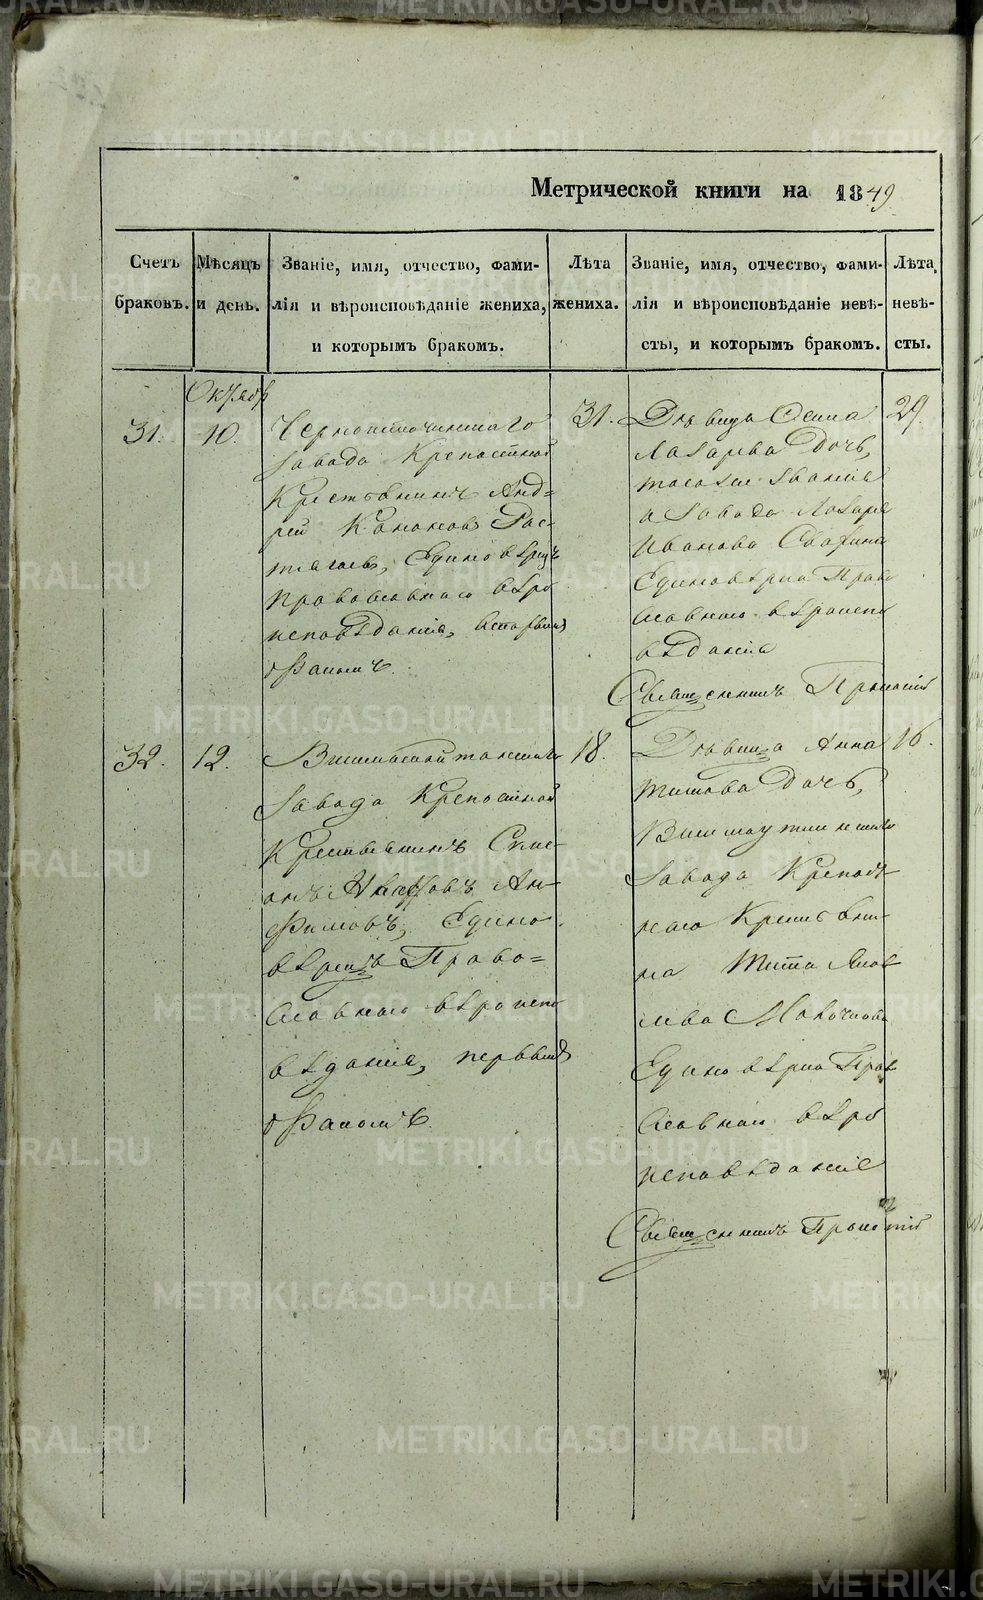 Метрической книги на 1849
Счетъ браковъ.
Мѣсяцъ и день.
Званіе, имя, отчество, фами-
лія и вѣроисповѣданіе жениха,
и которымъ бракомъ.
Лѣта жениха.
Званіе, имя, отчество, фами-
лія и вѣроисповѣданіе невѣ-
сты, и которымъ бракомъ.
Лѣта невѣ-
сты.
Октябр
31.
10.
Черноисточинскаго
завода Крепостной
Крестьянинъ Анд-
рей
Единовѣрецъ
Православнаго вѣро
исповѣданія, вторымъ
бракомъ
31.
Дѣвица
Лазарева Дочь,
такого же званія
и завода Лазаря
Иванова
Единовѣрца Право
славнаго вѣроиспо
вѣданія
29.
Священникъ
32.
12.
завода Крепостной
Крестьянинъ
Едино
вѣрецъ Право-
славнаго вѣроиспо
вѣданія, первымъ
бракомъ
18.
Дѣвица Анна
Титова Дочь,
завода Крепост
наго Крестьяни
на Тита Яков
лева
Единовѣрца Прав
славнаго вѣро
исповѣданія
16.
Священникъ
METRIKI.GASO-URAL.RU